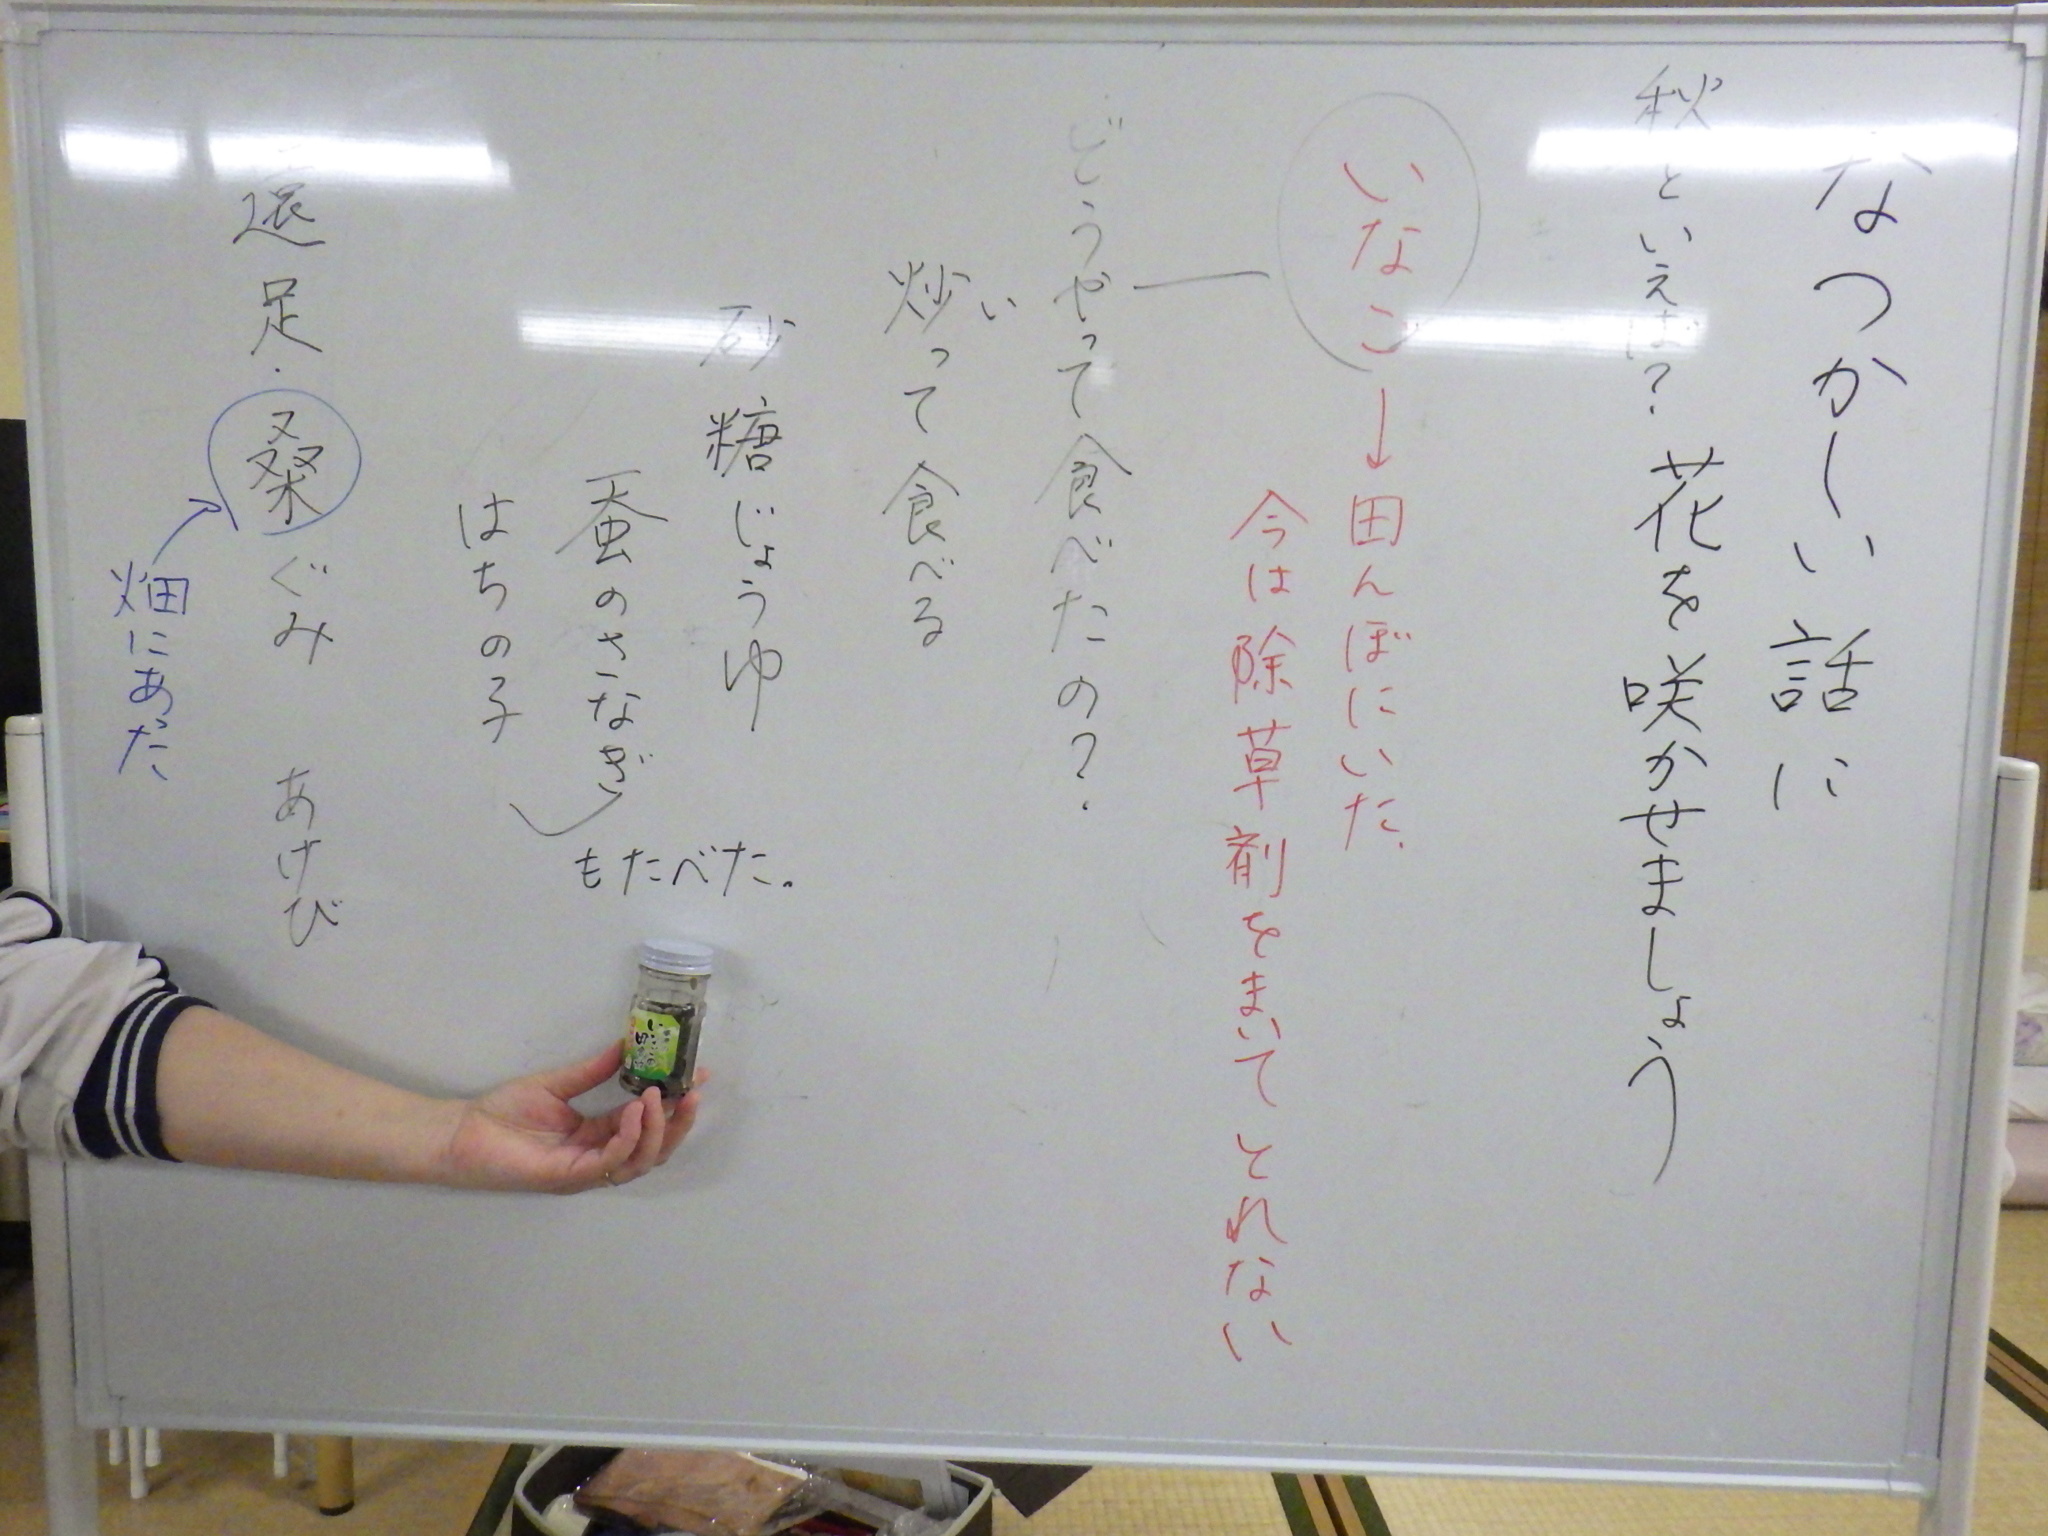 なつかしい話に
秋といえば？花を咲かせましょう
いなご→田んぼにいた。
今は除草剤をまいてとれない
どうやって食べたの？
い
炒って食べる
砂糖じょうゆ
蚕のさなぎ
はちの子
もたべた。
遠足・桑ぐみ あけび
畑にあった